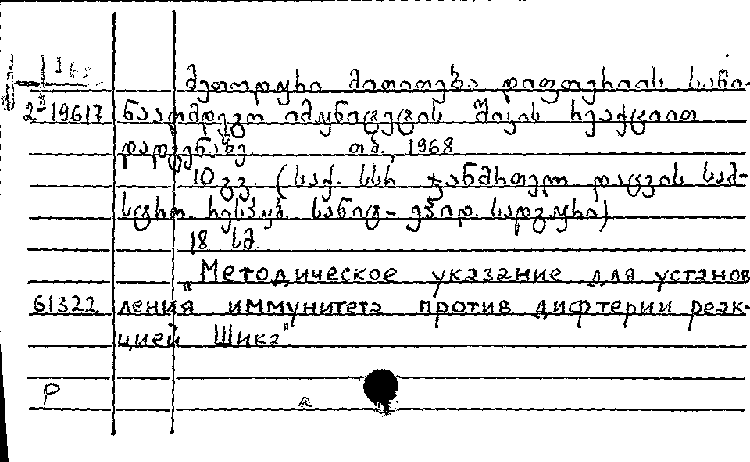 მეთოდური მითითება დიფთერიის საწი-
2-19617 ნააღმდეგო იმუნიტეტის შიკის რეაქციით
დადგენაზე თბ., 1968
10 გვ. (საქ. სსრ ჯანმრთელ. დაცვის სამ-
სტრო. რესპუბ. სანიტ-ეპიდ. სადგური)
18 სმ.
"Методическое указание для установ
61322 ления иммунитета против дифтерии реак-
цией Шика"
P